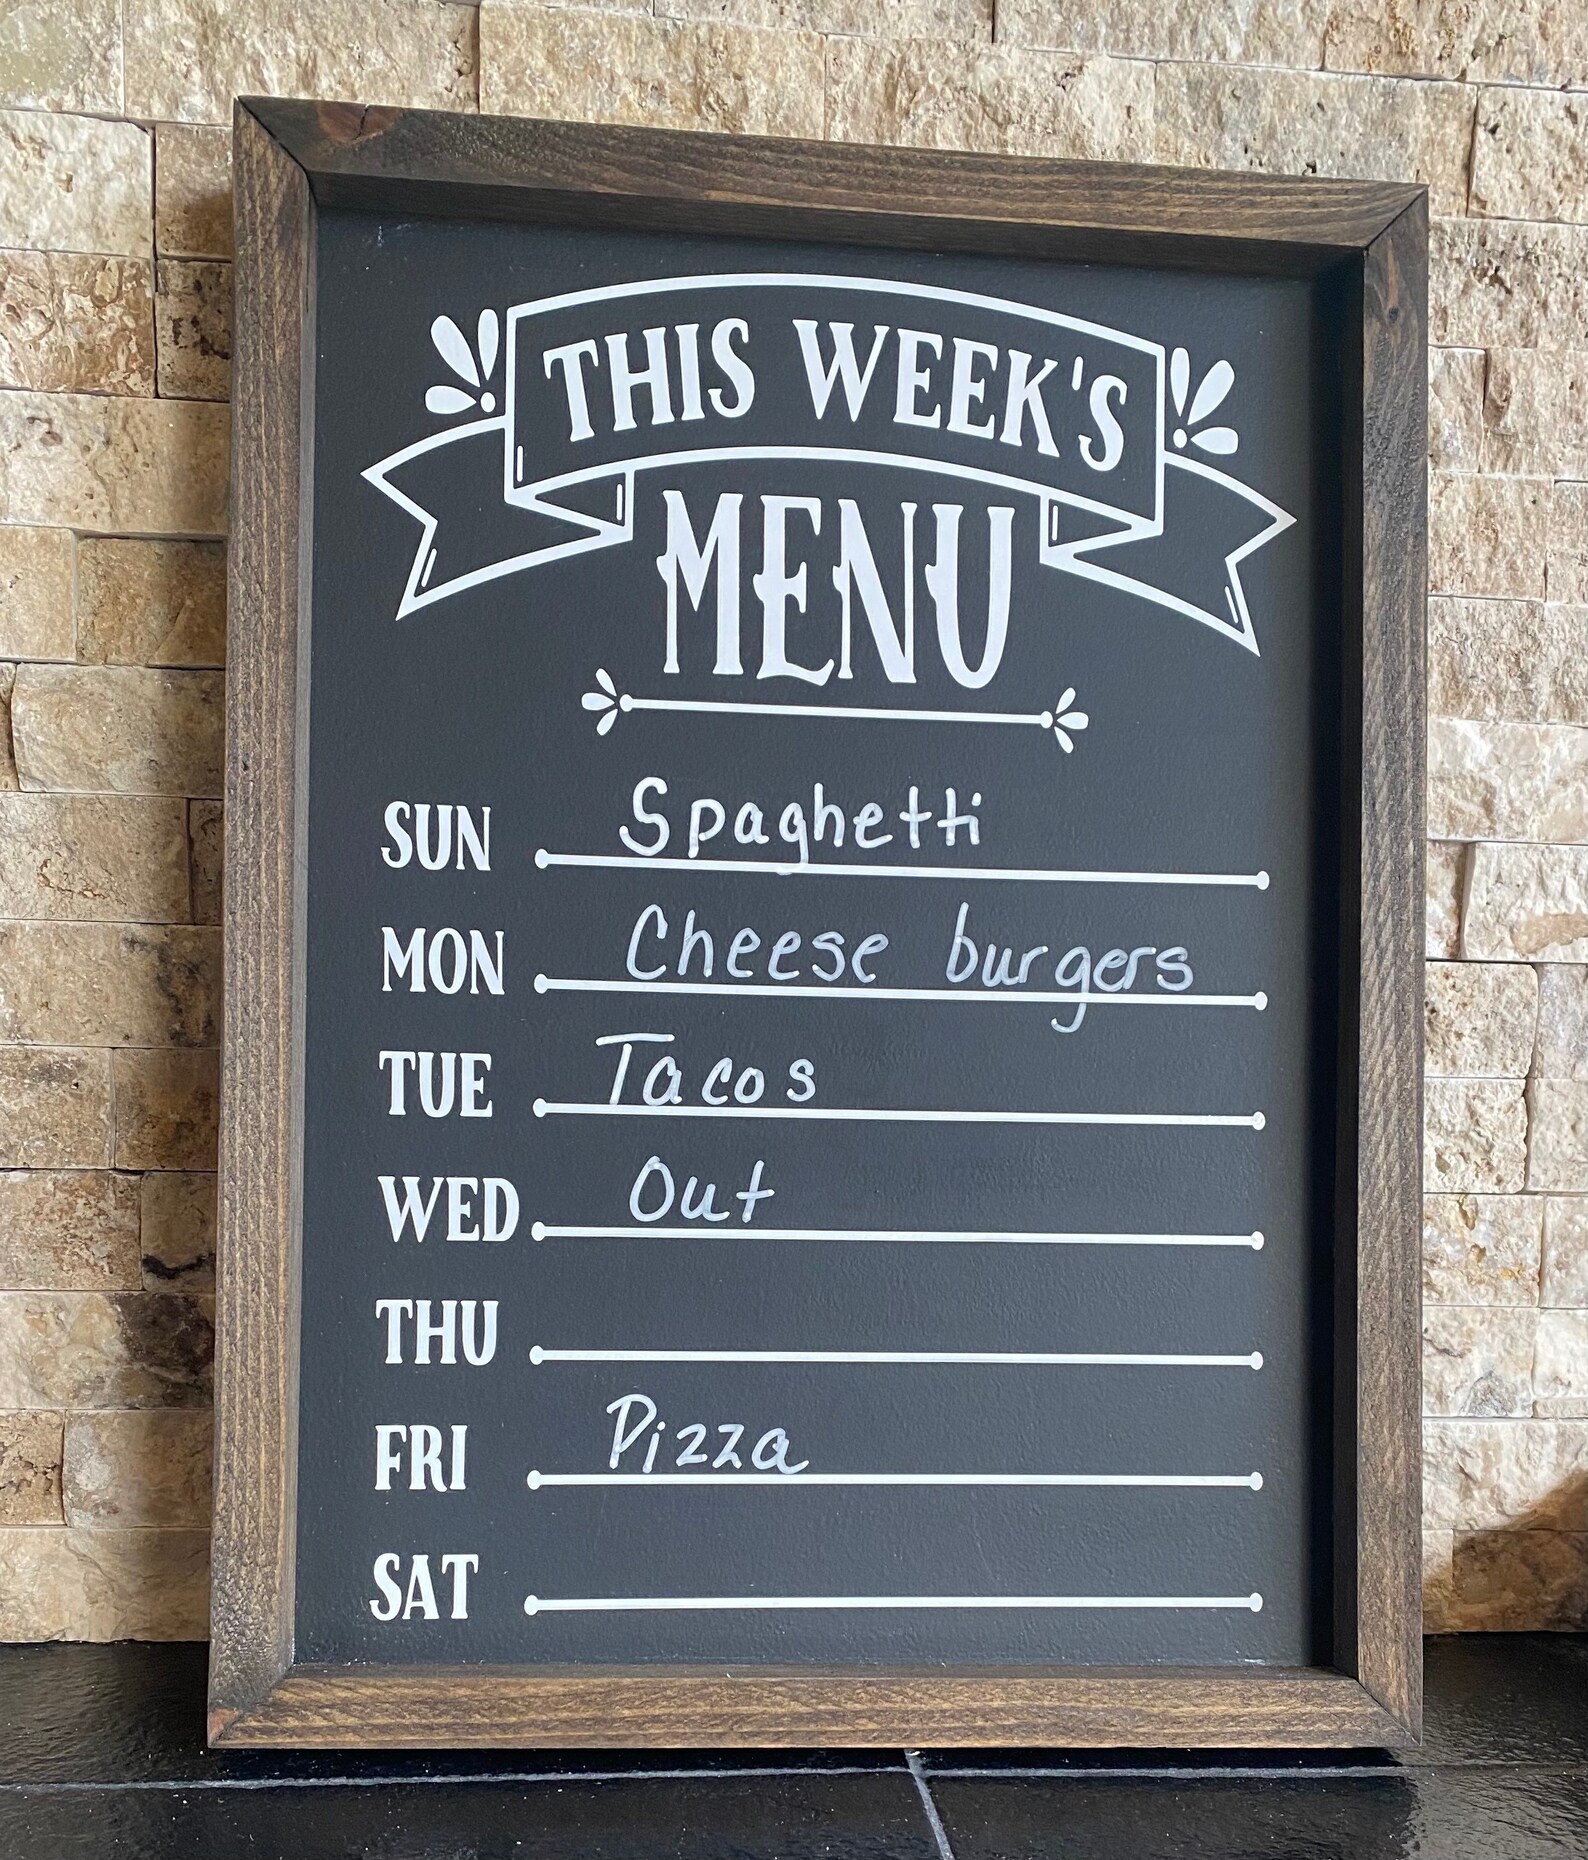 THIS WEEK'S
MENU
SUN Spaghetti
MON Cheese burgers
TUE Tacos
WED Out
THU
FRI Pizza
SAT